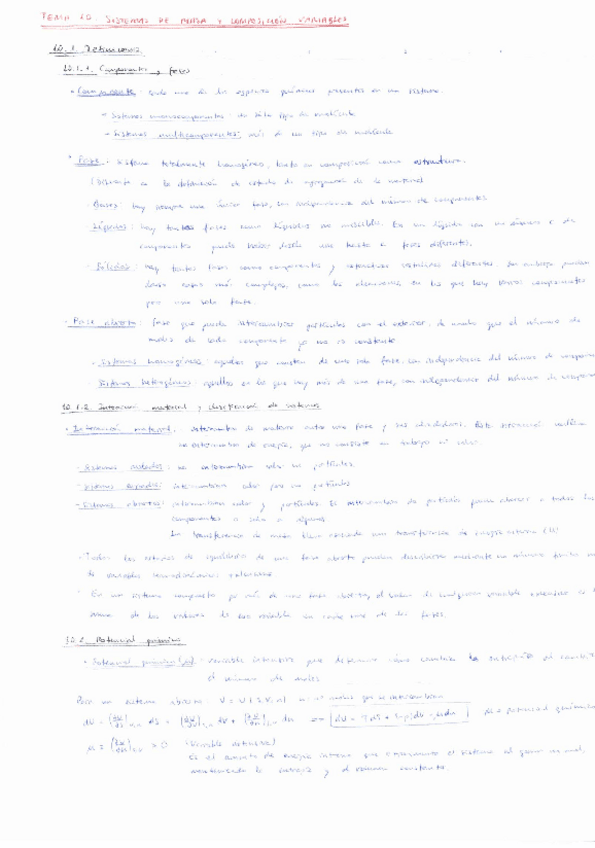 TEMA 10. SISTEMAS DE MASA Y COMPOSICIÓN VARIABLES
10.1. Definiciones
10.1.1. Componentes y fases
• Componente: cada una de las especies químicas presentes en un sistema.
- Sistemas monocomponentes: un solo tipo de molécula
- Sistemas multicomponentes: más de un tipo de molécula
• Fase: sistema totalmente homogéneo, tanto en composición como estructura.
de estado de agregación de la materia
- Gases: hay siempre una única fase, con independencia del número de componentes
- Líquidos: hay tantas fases como líquidos no miscibles. En un líquido con un número n de
componentes puede haber desde una hasta n fases diferentes.
- Sólidos: hay tantas fases como componentes y estructuras cristalinas diferentes. Sin embargo, pueden
darse casos más complejos, como las aleaciones en las que hay varios componentes
pero una sola fase.
- Fase abierta: fase que puede intercambiar partículas con el exterior, de modo que el número de
moles de cada componente ya no es constante
- Sistemas homogéneos: aquellos que constan de una sola fase, con independencia del número de componentes
- Sistemas heterogéneos: aquellos en los que hay más de una fase, con independencia del número de componentes
10.1.2. Interacción material y clasificación de sistemas
• Interacción material: intercambio de materia entre una fase y sus alrededores. Esta interacción
un intercambio de energía, que no consiste en trabajo ni calor.
- Sistemas aislados: no intercambian calor ni partículas
- Sistemas cerrados: intercambian calor pero no partículas
- Sistemas abiertos: intercambian calor y partículas. El intercambio de partículas puede afectar a todos los
componentes o solo a algunos
La transferencia de masa lleva asociada una transferencia de energía interna (U)
- Todos los estados de equilibrio de una fase abierta pueden describirse mediante un número finito
de variables termodinámicas
• En un sistema compuesto por más de una fase abierta, el valor de cualquier variable extensiva es la
suma de los valores de esa variable en cada una de las fases.
10.2. Potencial químico
• Potencial químico (μ): variable intensiva que determina cómo cambia la
el número de moles
Para un sistema abierto: U = U(S,V,n)
dU = (∂U/∂S)V,n dS + (∂U/∂V)S,n dV + (∂U/∂n)S,V dn ⇒ dU = TdS + (-p)dV + μdn μ ≡ potencial químico
μ = (∂U/∂n)S,V > 0 (Variable intensiva)
Es el aumento de energía interna que experimenta el sistema al ganar un mol,
manteniendo la entropía y el volumen constante.